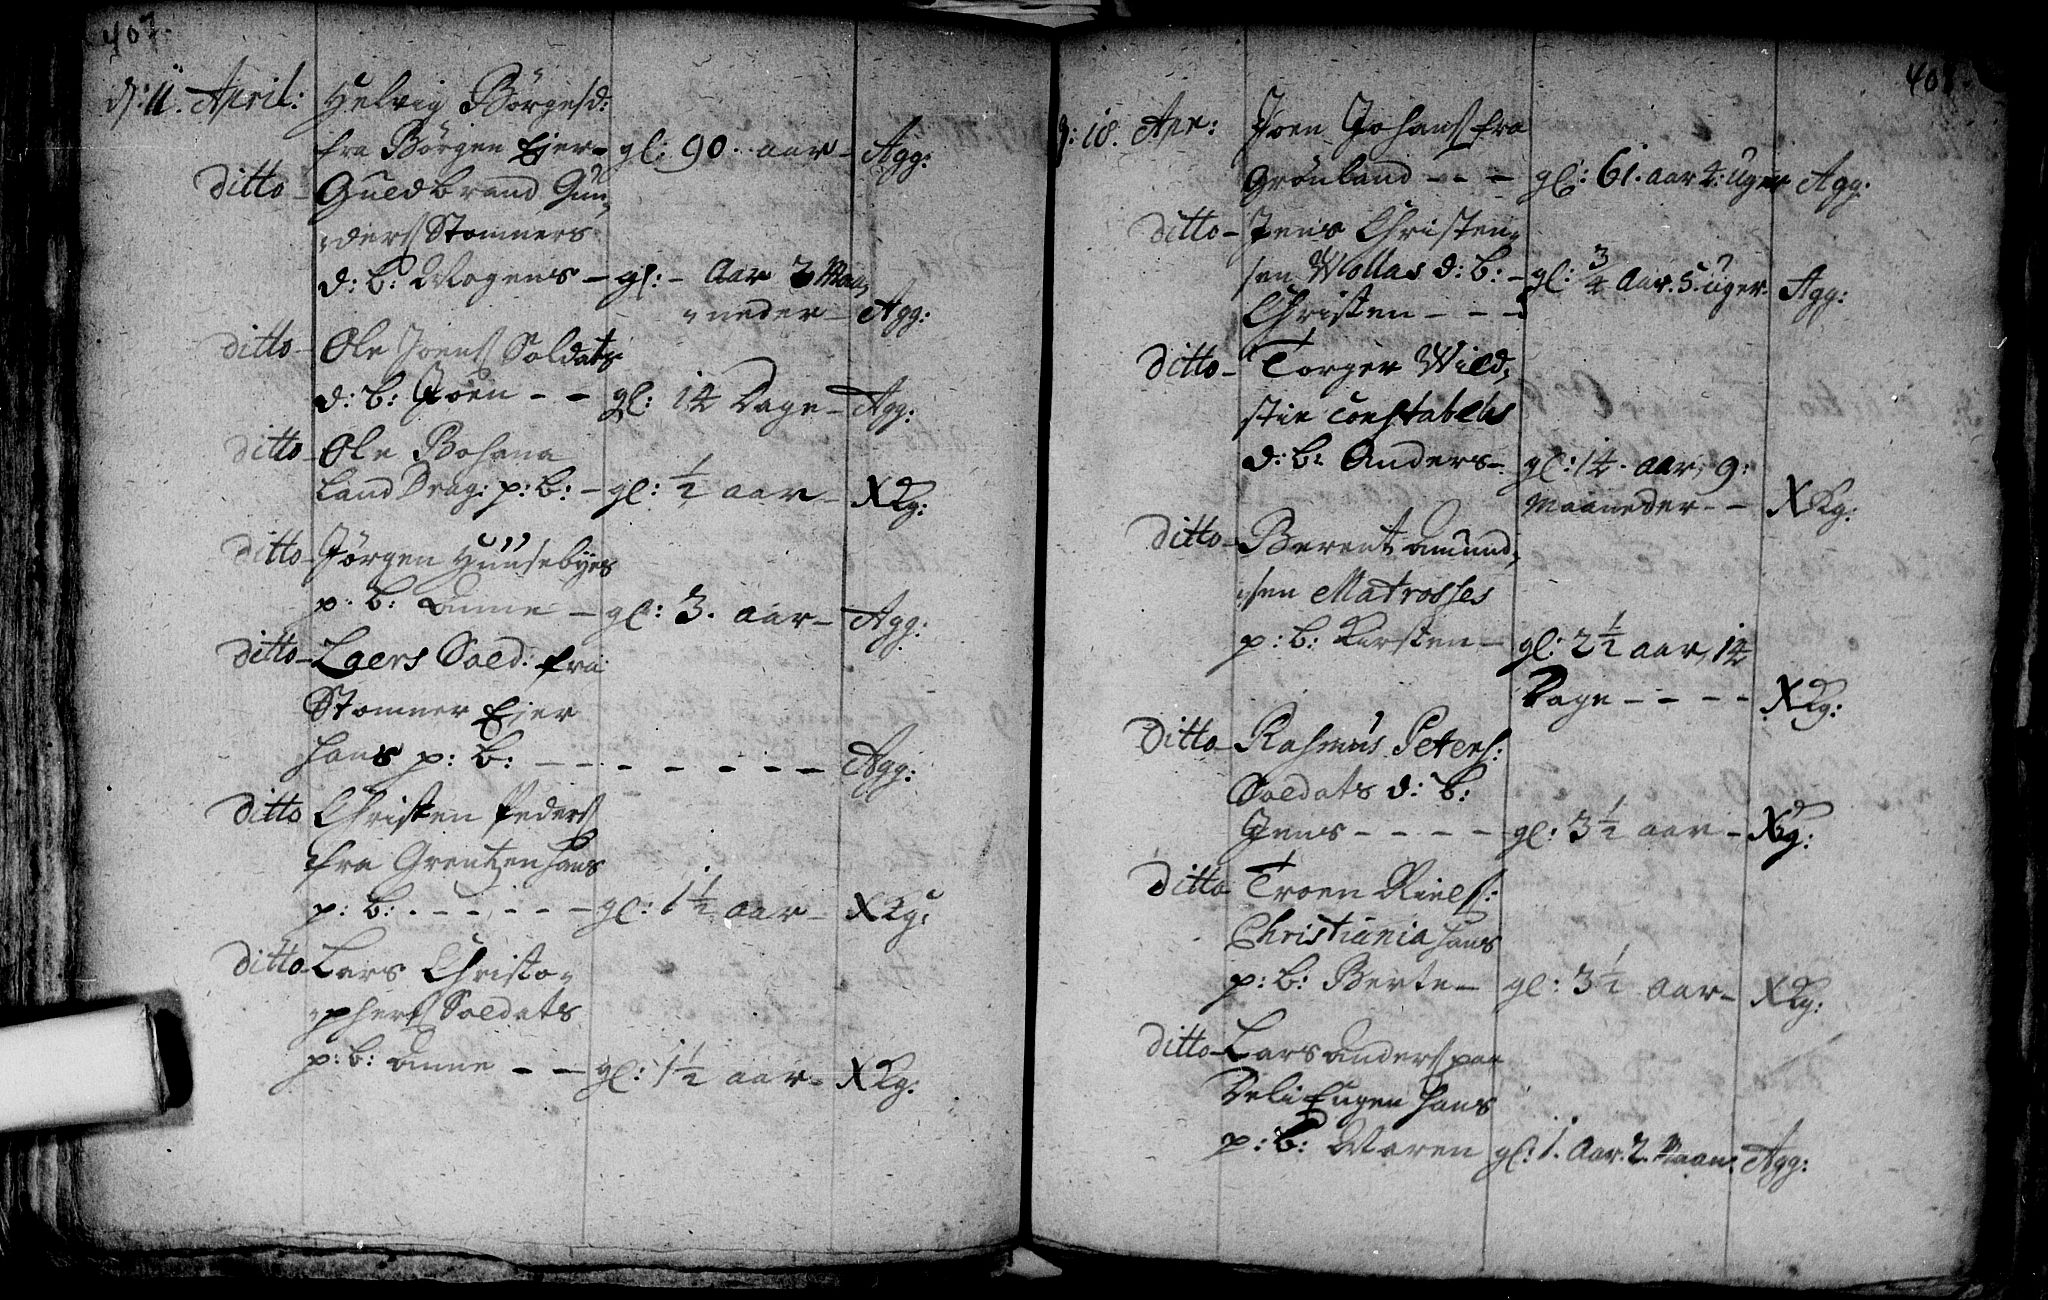 407.
d: 11. April: Helvig Börgesd:
fra Börgen Ejer- gl: 90. aar- Agg:
Ditto- Guldbrand Gun,
,ders Stomners
d: b: Mogens- gl: - Aar 2 Maa,
,neder- Agg:
ditto- Ole Joens Soldats
d: b: Joen - - gl: 14 Dage- Agg:
ditto- Ole
Land Drag: p: b: - gl: 1/2 aar- XKg:
ditto- Jörgen Huusebyes
p: b: Anne - gl: 3. aar- Agg:
ditto- Laers Sold: fra
Stomner Ejer
hans p: b: - - - - - - - - Agg:
ditto Christen Peders
fra Grentzen hans
p: b: - - - - - gl: 1 1/2 aar- XKg:
ditto- Lars Christo,
,phers Soldats
p: b: Anne - - gl: 1 1/2 aar- XKg:
408.
d: 18. Apr: Joen Johans fra
Grönland - - - gl: 61. aar 4: Uger Agg:
ditto- Jens Christen,
sen Wollas d: b: - gl: 3/4 Aar. 5. uger. Agg:
Christen - - -
ditto- Torger Wild,
stie Constabels
d: b: Anders- gl: 14. aar, 9:
Maaneder- - XKg:
ditto- Berent Amund,
,sen Matrosses
p: b: Karsten- gl: 2 1/2 aar, 14
Dage - - - - XKg:
Ditto- Rasmus Peters:
Soldats d: b:
Jens - - - - gl: 3 1/2 aar- XKg:
Ditto Troen Niels:
Christiania hans
p: b: Berte- gl: 3 1/2 aar- XKg:
ditto- Lars Anders paa
Deli Eugen hans
p: b: Maren gl: 1. Aar. 2. Maan: Agg: